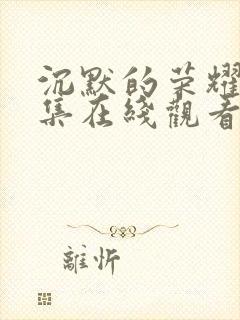 沉默的荣耀
集在綫觀看
離忻